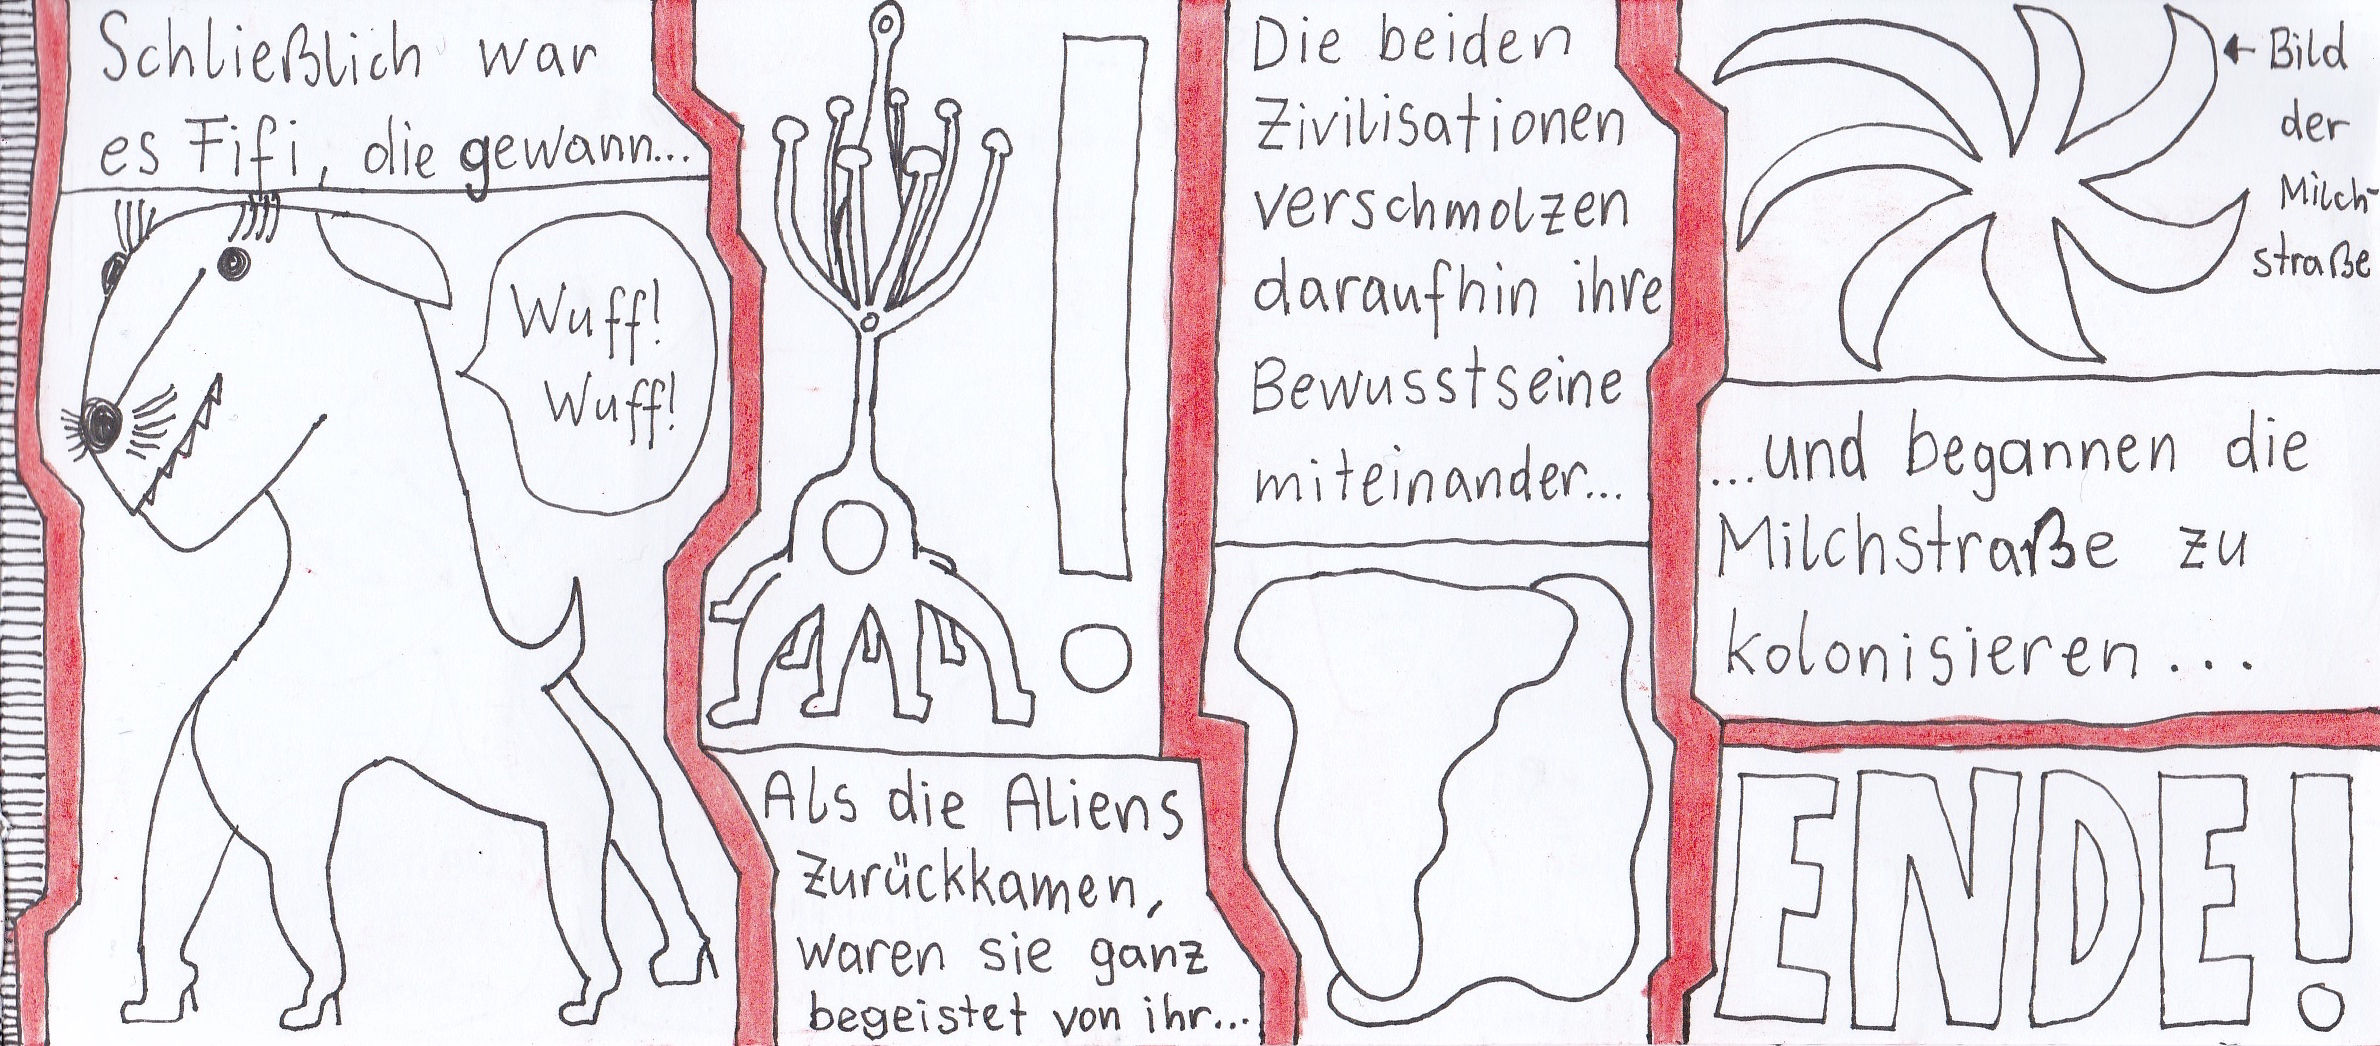 Schließlich war
es Fifi, die gewann...
Wuff!
Wuff!
!
Als die Aliens
zurückkamen,
waren sie ganz
begeistet von ihr...
Die beiden
Zivilisationen
verschmolzen
daraufhin ihre
Bewusstseine
miteinander...
← Bild
der
Milch-
straße
...und begannen die
Milchstraße zu
kolonisieren...
ENDE!